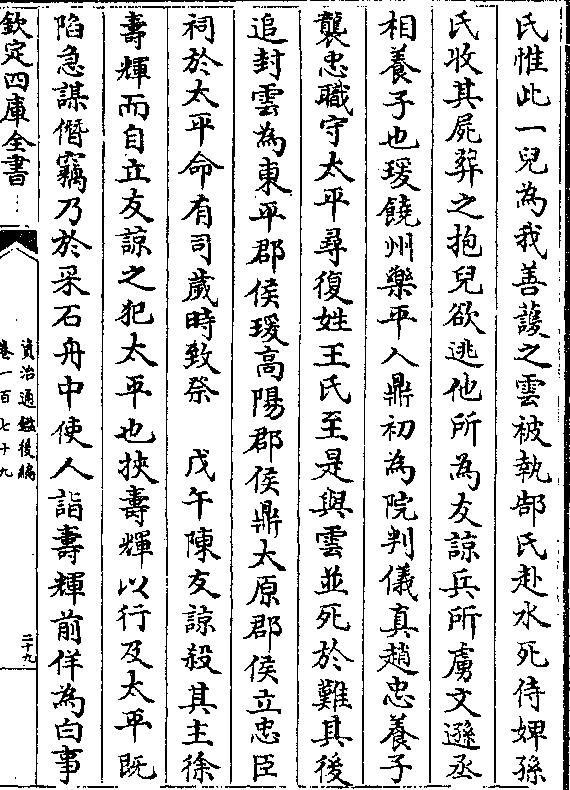 氏惟此一兒為我善䕶之雲被執郜氏赴水死侍婢孫
氏收其屍葬之抱兒欲逃他所為友諒兵所虜文遜丞
相養子也瑗饒州樂平人鼎初為院判儀真趙忠養子
襲忠職守太平尋復姓王氏至是與雲並死於難其後
追封雲為東平郡侯瑗高陽郡侯鼎太原郡侯立忠臣
祠於太平命有司歲時致祭　戊午陳友諒殺其主徐
壽輝而自立友諒之犯太平也挾壽輝以行及太平既
陷急謀僭竊乃於采石舟中使人詣壽輝前佯為白事
欽定四庫全書
資治通鑑後編
卷一百七十九
二十九